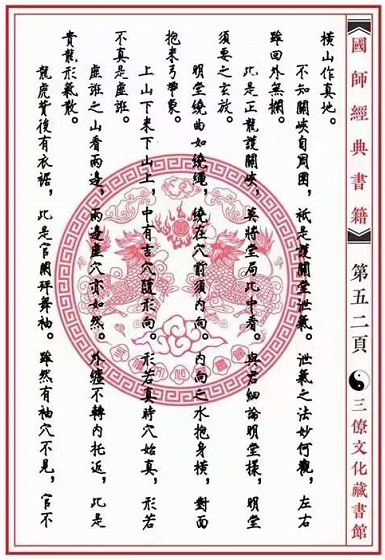 國師經典書籍
第五二頁
三僚文化藏書館
橫山作真地。
不知關峽自周圍，祇是護關堂泄氣。泄氣之法妙何觀，左右
雖回外無攔。
此是正龍護關峽，莫將堂局此中看。與君細論明堂樣，明堂
須要之玄放。
明堂繞曲如繞繩，繞在穴前須內向。內向之水抱身橫，對面
抱來弓帶象。
上山下來下山上，中有吉穴隨形向。形若真時穴始真，形若
不真是虛誑。
虛誑之山看兩邊，兩邊虛穴亦如然。外纏不轉內托返，此是
貴龍形氣散。
龍虎背後有衣裾，此是官闌拜舞袖。雖然有袖穴不見，官不